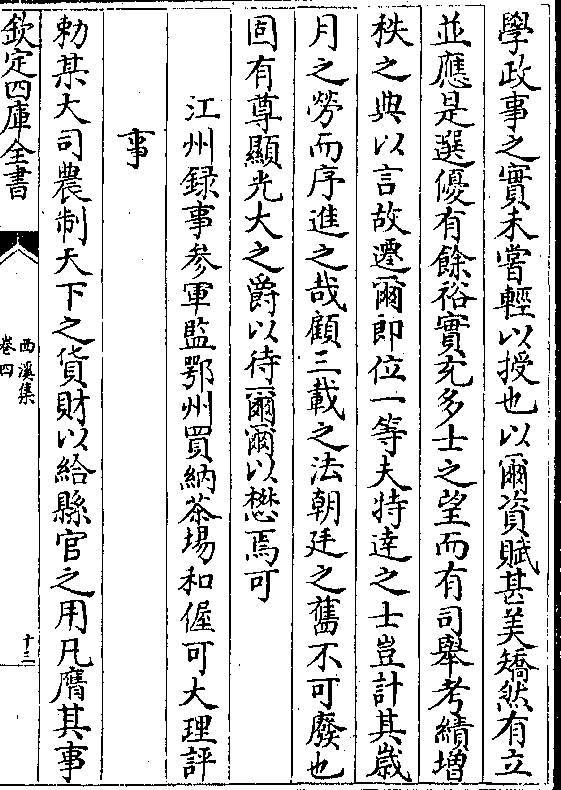 學政事之實未嘗輕以授也以爾資賦甚美矯然有立
並應是選優有餘裕實充多士之望而有司舉考績增
秩之典以言故遷爾即位一等夫特達之士豈計其歲
月之勞而序進之哉顧三載之法朝廷之舊不可廢也
固有尊顯光大之爵以待爾爾以懋焉可
江州録事參軍監鄂州買納茶場和偓可大理評
事
勅某大司農制天下之貨財以給縣官之用凡膺其事
欽定四庫全書
西溪集
卷四
十三